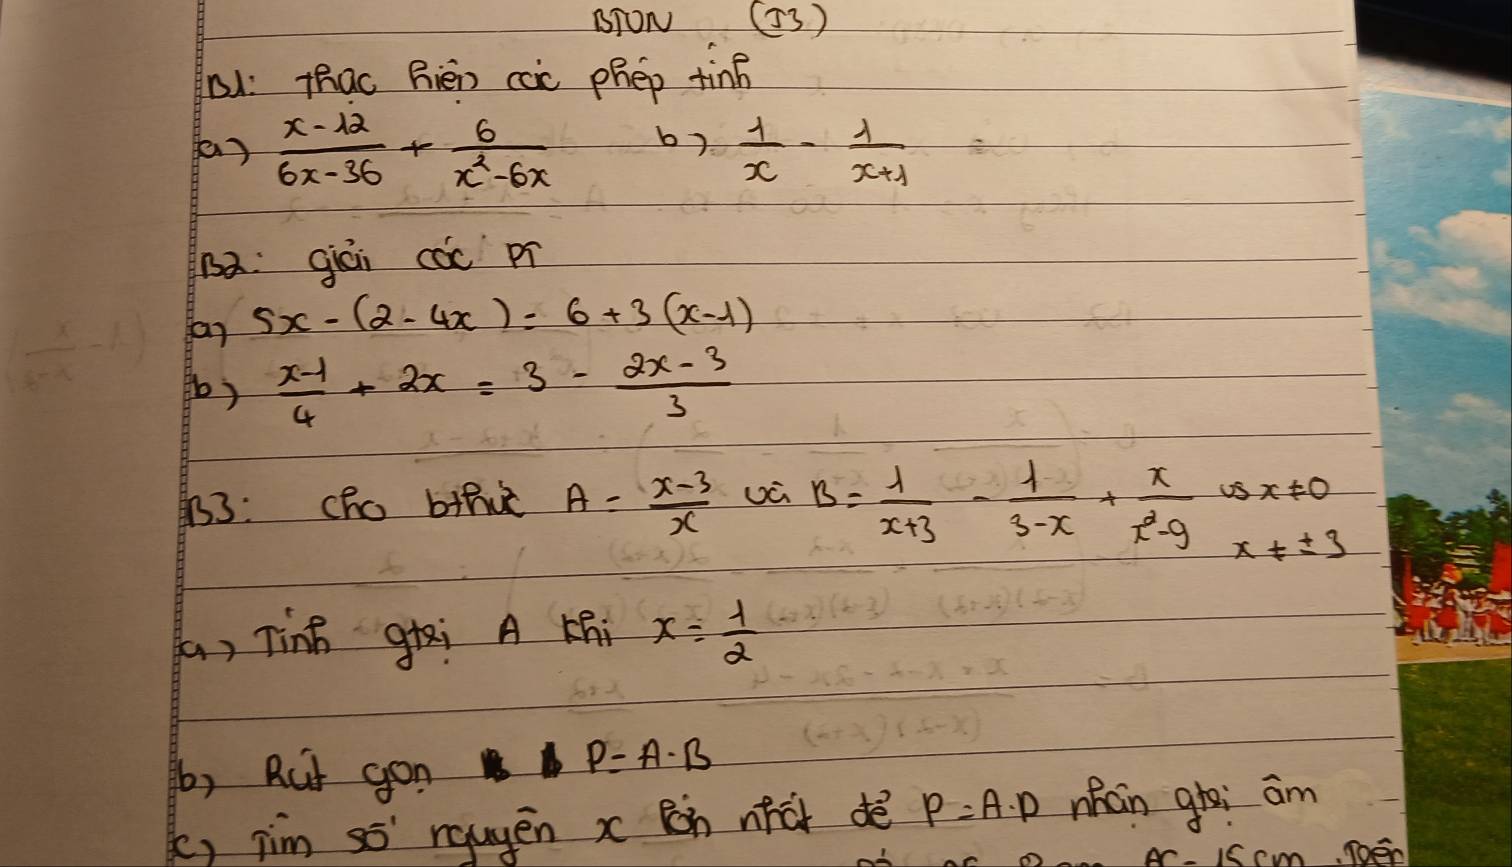 BTON (T3)
B1: Thực hiện các phép tính
a) \frac{x-12}{6x-36} + \frac{6}{x^2-6x} b) \frac{1}{x} - \frac{1}{x+1}
B2: giải các PT
a) 5x - (2 - 4x) = 6 + 3(x-1)
b) \frac{x-1}{4} + 2x = 3 - \frac{2x-3}{3}
B3: cho bthức A = \frac{x-3}{x} và B = \frac{1}{x+3} - \frac{1}{3-x} + \frac{x}{x^2-9} vs x ≠ 0
x ≠ ± 3
a) Tính gtrị A khi x = \frac{1}{2}
b) Rút gọn P = A.B
c) Tìm số nguyên x lớn nhất để P = A.B nhận gtrị âm
AC = 15 cm. Trên